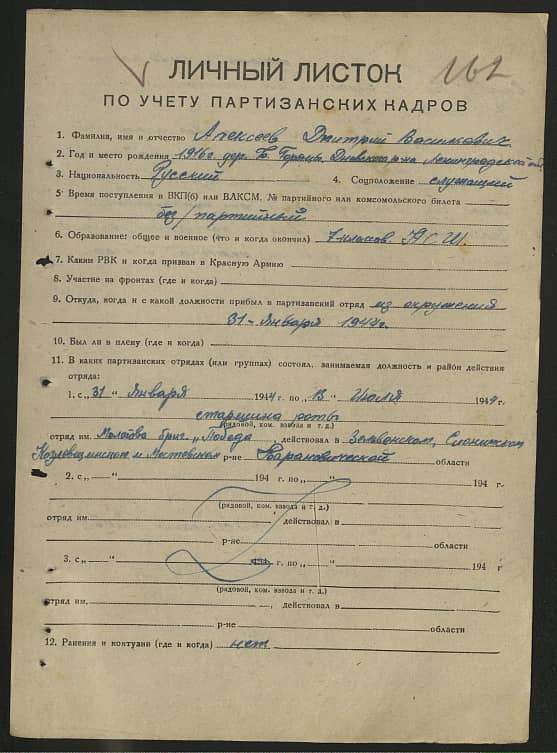 162
ЛИЧНЫЙ ЛИСТОК
ПО УЧЕТУ ПАРТИЗАНСКИХ КАДРОВ
1. Фамилия, имя и отчество Алексеев Дмитрий Васильевич.
2. Год и место рождения 1916г. дер. Б. Горянцы Ленинградской обл
3. Национальность Русский 4. Соцположение служащий
5. Время поступления в ВКП(б) или ВЛКСМ, № партийного или комсомольского билета
без/партийный
6. Образование: общее и военное (что и когда окончил) 7 классов. НСШ.
7. Каким РВК и когда призван в Красную Армию
8. Участие на фронтах (где и когда)
9. Откуда, когда и с какой должности прибыл в партизанский отряд из окружения
31-Января 1944г.
10. Был ли в плену (где и когда)
11. В каких партизанских отрядах (или группах) состоял, занимаемая должность и район действия
отряда:
1. с „31“ Января 1944 г. по „13“ Июля 1944 г.
старшина роты
(рядовой, ком. взвода и т. д.)
отряд им. бриг „Победа , действовал в Зельвенском, Слонимском
Козловщинском и Мостовском р-не Барановической области
2. с „ “ 194 г. по „ “ 194 г.
(рядовой, ком. взвода и т. д.)
отряд им. , действовал в
р-не области
3. с „ “ 194 г. по „ “ 194 г
(рядовой, ком. взвода и т. д.)
отряд им. , действовал в
р-не области
12. Ранения и контузии (где и когда) нет